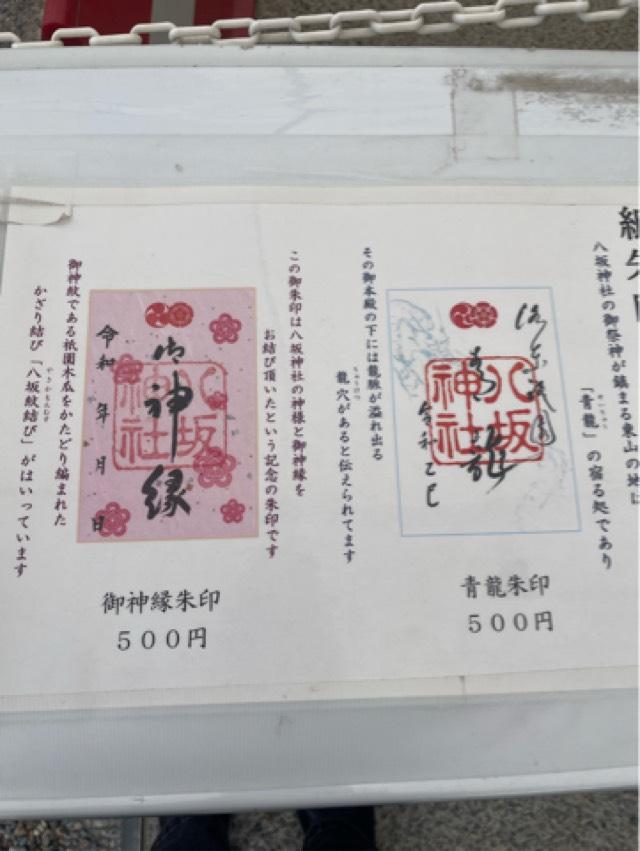 八坂神社の御祭神が鎮まる東山の地に
「青龍」の宿る処であり
せいりゅう
その御本殿の下には龍脈が溢れ出る
龍穴があると伝えられてます
りゅうけつ
八坂
神社
青龍
青龍朱印
500円
この御朱印は八坂神社の神様と御神縁を
お結び頂いたという記念の朱印です
御神縁
八坂
神社
令和 年 月 日
御神紋である祇園木瓜をかたどり編まれた
かざり結び「八坂紋結び」がはいっています
やさかもんむすび
御神縁朱印
500円